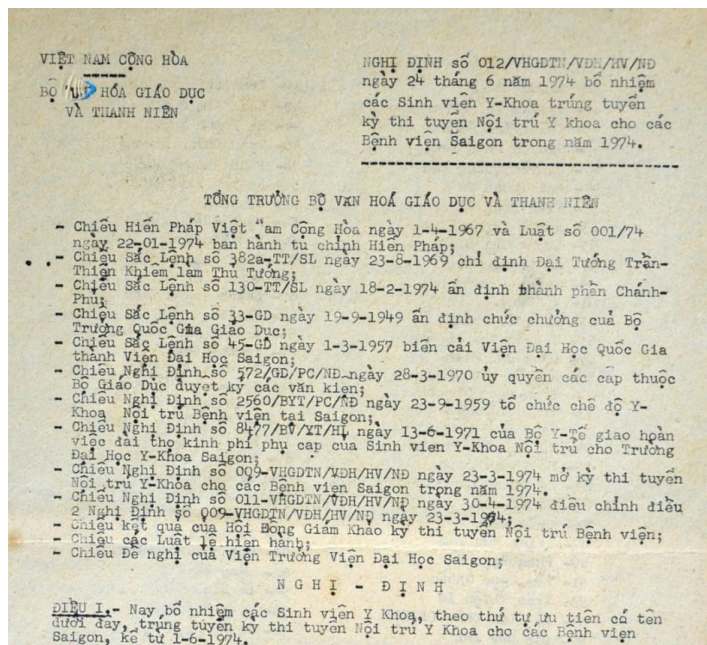 VIỆT NAM CỘNG HÒA
BỘ HÓA GIÁO DỤC
VÀ THANH NIÊN
NGHỊ ĐỊNH số 012/VHGDTN/VĐH/HV/NĐ
ngày 24 tháng 6 năm 1974 bổ nhiệm
các Sinh viên Y-Khoa trúng tuyển
kỳ thi tuyển Nội trú Y khoa cho các
Bệnh viện Saigon trong năm 1974.
TỔNG TRƯỞNG BỘ VĂN HOÁ GIÁO DỤC VÀ THANH NIÊN
- Chiếu Hiến Pháp Việt Nam Cộng Hòa ngày 1-4-1967 và Luật số 001/74
ngày 22-01-1974 ban hành tu chỉnh Hiến Pháp;
- Chiếu Sắc Lệnh số 382a-TT/SL ngày 23-8-1969 chỉ định Đại Tướng Trần-
Thiện Khiêm làm Thủ Tướng;
- Chiếu Sắc Lệnh số 130-TT/SL ngày 18-2-1974 ấn định thành phần Chánh-
Phủ;
- Chiếu Sắc Lệnh số 33-GD ngày 19-9-1949 ấn định chức chưởng cuả Bộ
Trưởng Quốc Gia Giáo Dục;
- Chiếu Sắc Lệnh số 45-GD ngày 1-3-1957 biến cải Viện Đại Học Quốc Gia
thành Viện Đại Học Saigon;
- Chiếu Nghị Định số 572/GD/PC/NĐ ngày 28-3-1970 ủy quyền các cấp thuộc
Bộ Giáo Dục duyệt ký các văn kiện;
- Chiếu Nghị Định số 2560/BYT/PC/NĐ ngày 23-9-1959 tổ chức chế độ Y-
Khoa Nội trú Bệnh viện tại Saigon;
- Chiếu Nghị Định số 8477/BV/XT/HL ngày 13-6-1971 của Bộ Y-Tế giao hoàn
việc đài thọ kinh phí phụ cấp của Sinh viên Y-Khoa Nội trú cho Trường
Đại Học Y-Khoa Saigon;
- Chiếu Nghị Định số 009-VHGDTN/VĐH/HV/NĐ ngày 23-3-1974 mở kỳ thi tuyển
Nội trú Y-Khoa cho các Bệnh viện Saigon trong năm 1974.
- Chiếu Nghị Định số 011-VHGDTN/VĐH/HV/NĐ ngày 30-4-1974 điều chỉnh điều
2 Nghị Định số 009-VHGDTN/VĐH/HV/NĐ ngày 23-3-1974;
- Chiếu kết quả của Hội Đồng Giám Khảo kỳ thi tuyển Nội trú Bệnh viện;
- Chiếu các Luật lệ hiện hành;
- Chiếu Đề nghị của Viện Trưởng Viện Đại Học Saigon;
N G H Ị - Đ Ị N H
ĐIỀU I.- Nay bổ nhiệm các Sinh viên Y Khoa, theo thứ tự ưu tiên có tên
dưới đây, trúng tuyển kỳ thi tuyển Nội trú Y Khoa cho các Bệnh viện
Saigon, kể từ 1-6-1974.